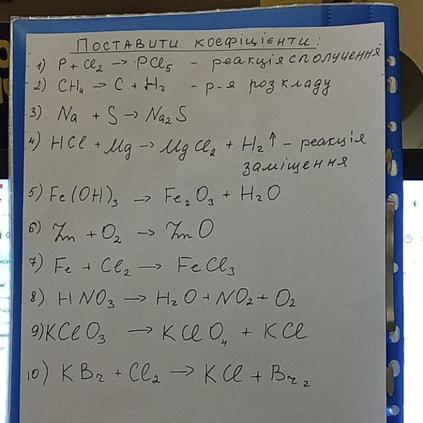 Поставити коефіцієнти:
1) P + Cl₂ → PCl₅ - реакція сполучення
2) CH₄ → C + H₂ - р-я розкладу
3) Na + S → Na₂S
4) HCl + Mg → MgCl₂ + H₂↑ - реакція
заміщення
5) Fe(OH)₃ → Fe₂O₃ + H₂O
6) Zn + O₂ → ZnO
7) Fe + Cl₂ → FeCl₃
8) HNO₃ → H₂O + NO₂ + O₂
9) KClO₃ → KClO₄ + KCl
10) KBr + Cl₂ → KCl + Br₂